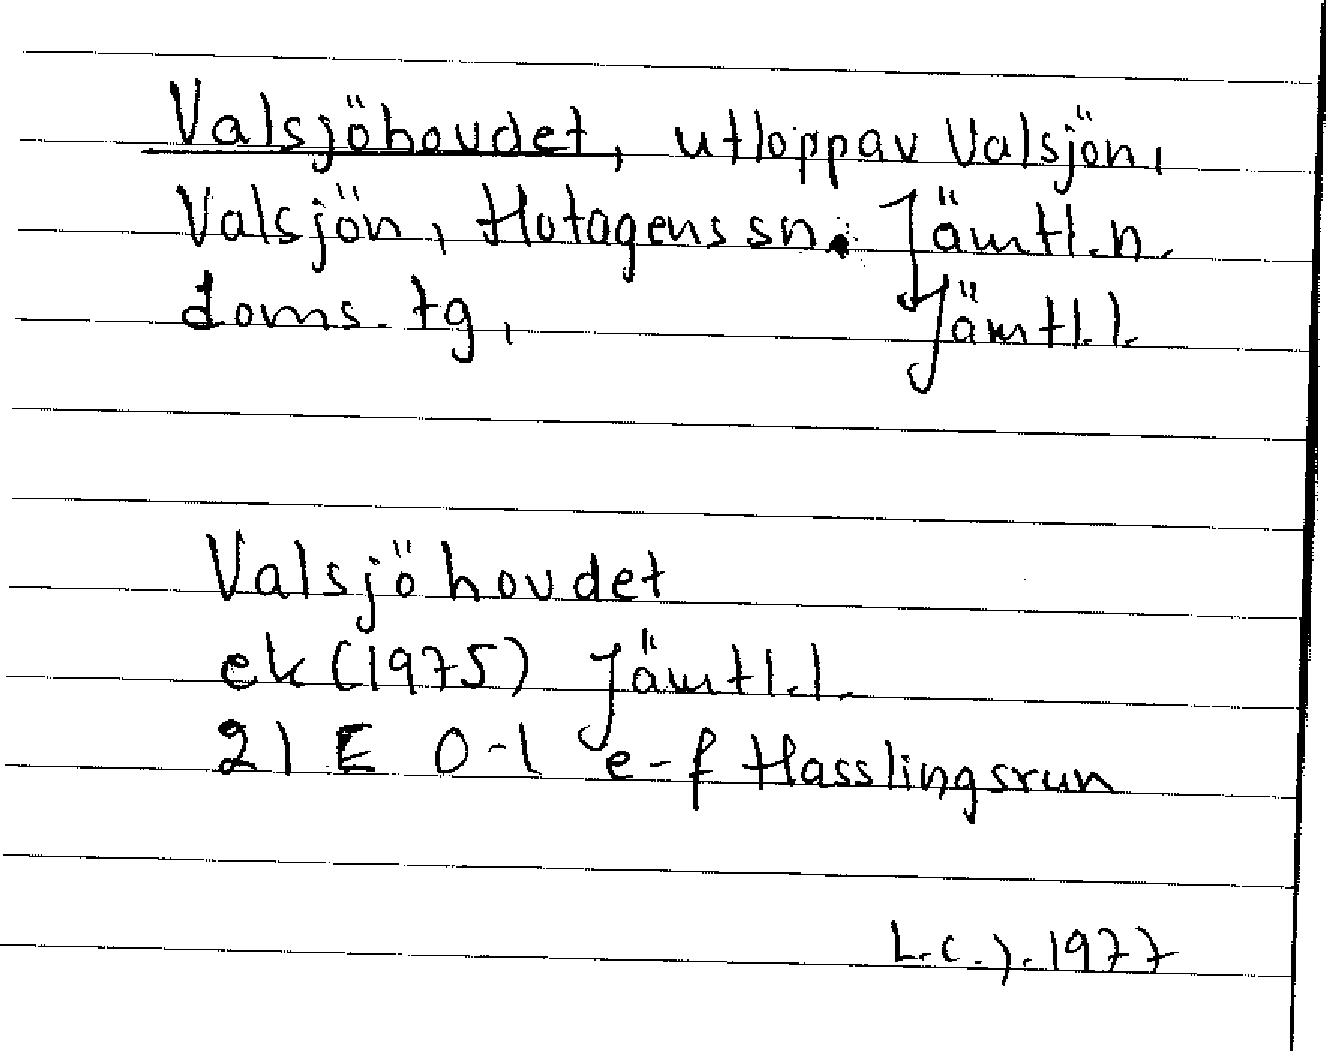 Valsjöhovdet, utlopp av Valsjön,
Valsjön, Hotagens sn. Jämtl. n.
doms. tg, Jämtl. l.
Valsjöhovdet
ek (1975) Jämtl. l.
21 E 0-1 e-f Hasslingsrun
L.C.J. 1977